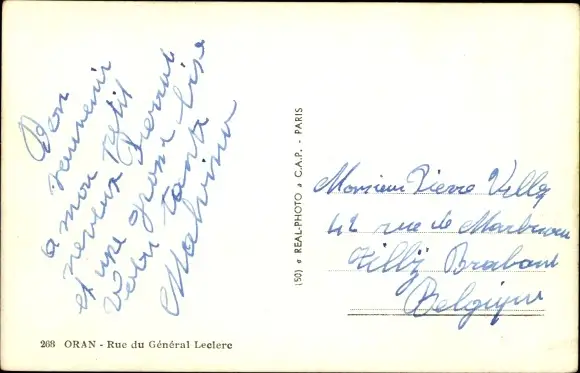 Bon
souvenir
a mon Petit
neveux Pierrot
et une grosse bise
Votre tante
Malvina
(50) REAL-PHOTO C.A.P. - PARIS
Monsieur Pierre Villy
42 rue de
Tilly Brabant
Belgique
268 ORAN - Rue du Général Leclerc